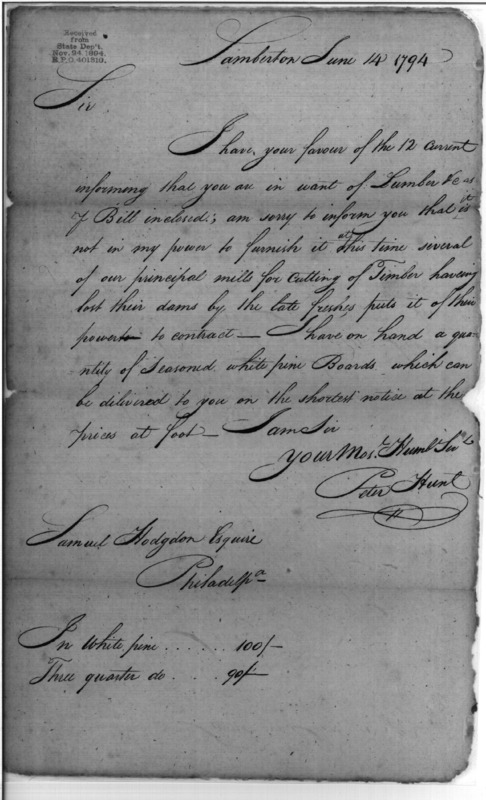 Received
from
State Dep't.
Nov. 24 1894.
R.P.O. 401319.
Lamberton June 14 1794
Sir
I have your favour of the 12 Current
informing that you are in want of Lumber &c as
⅌ Bill inclosed; am sorry to inform you that it is
not in my power to furnish it at this time several
of our principal mills for Cutting of Timber haveing
lost their dams by the late freshes puts it of their
power to contract — I have on hand a qua-
ntity of Seasoned white pine Boards which can
be delivered to you on the shortest notise at the
prices at foot — I am Sir
your Mos.t Huml Servt
Peter Hunt
Samuel Hodgdon Esquire
Philadelpa
In White pine ...... 100/-
Three quarter do .... 90/-